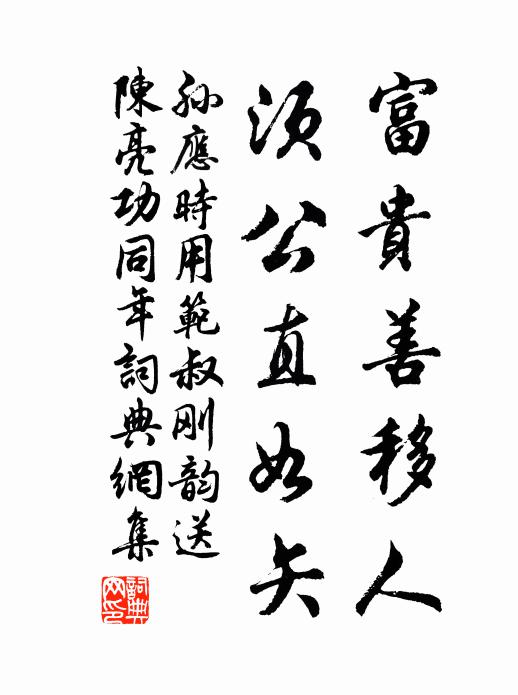 富貴善移人
須公直如矢
孫應時用範叔剛韵送
陳亮功同年詞典網集
詞典網印